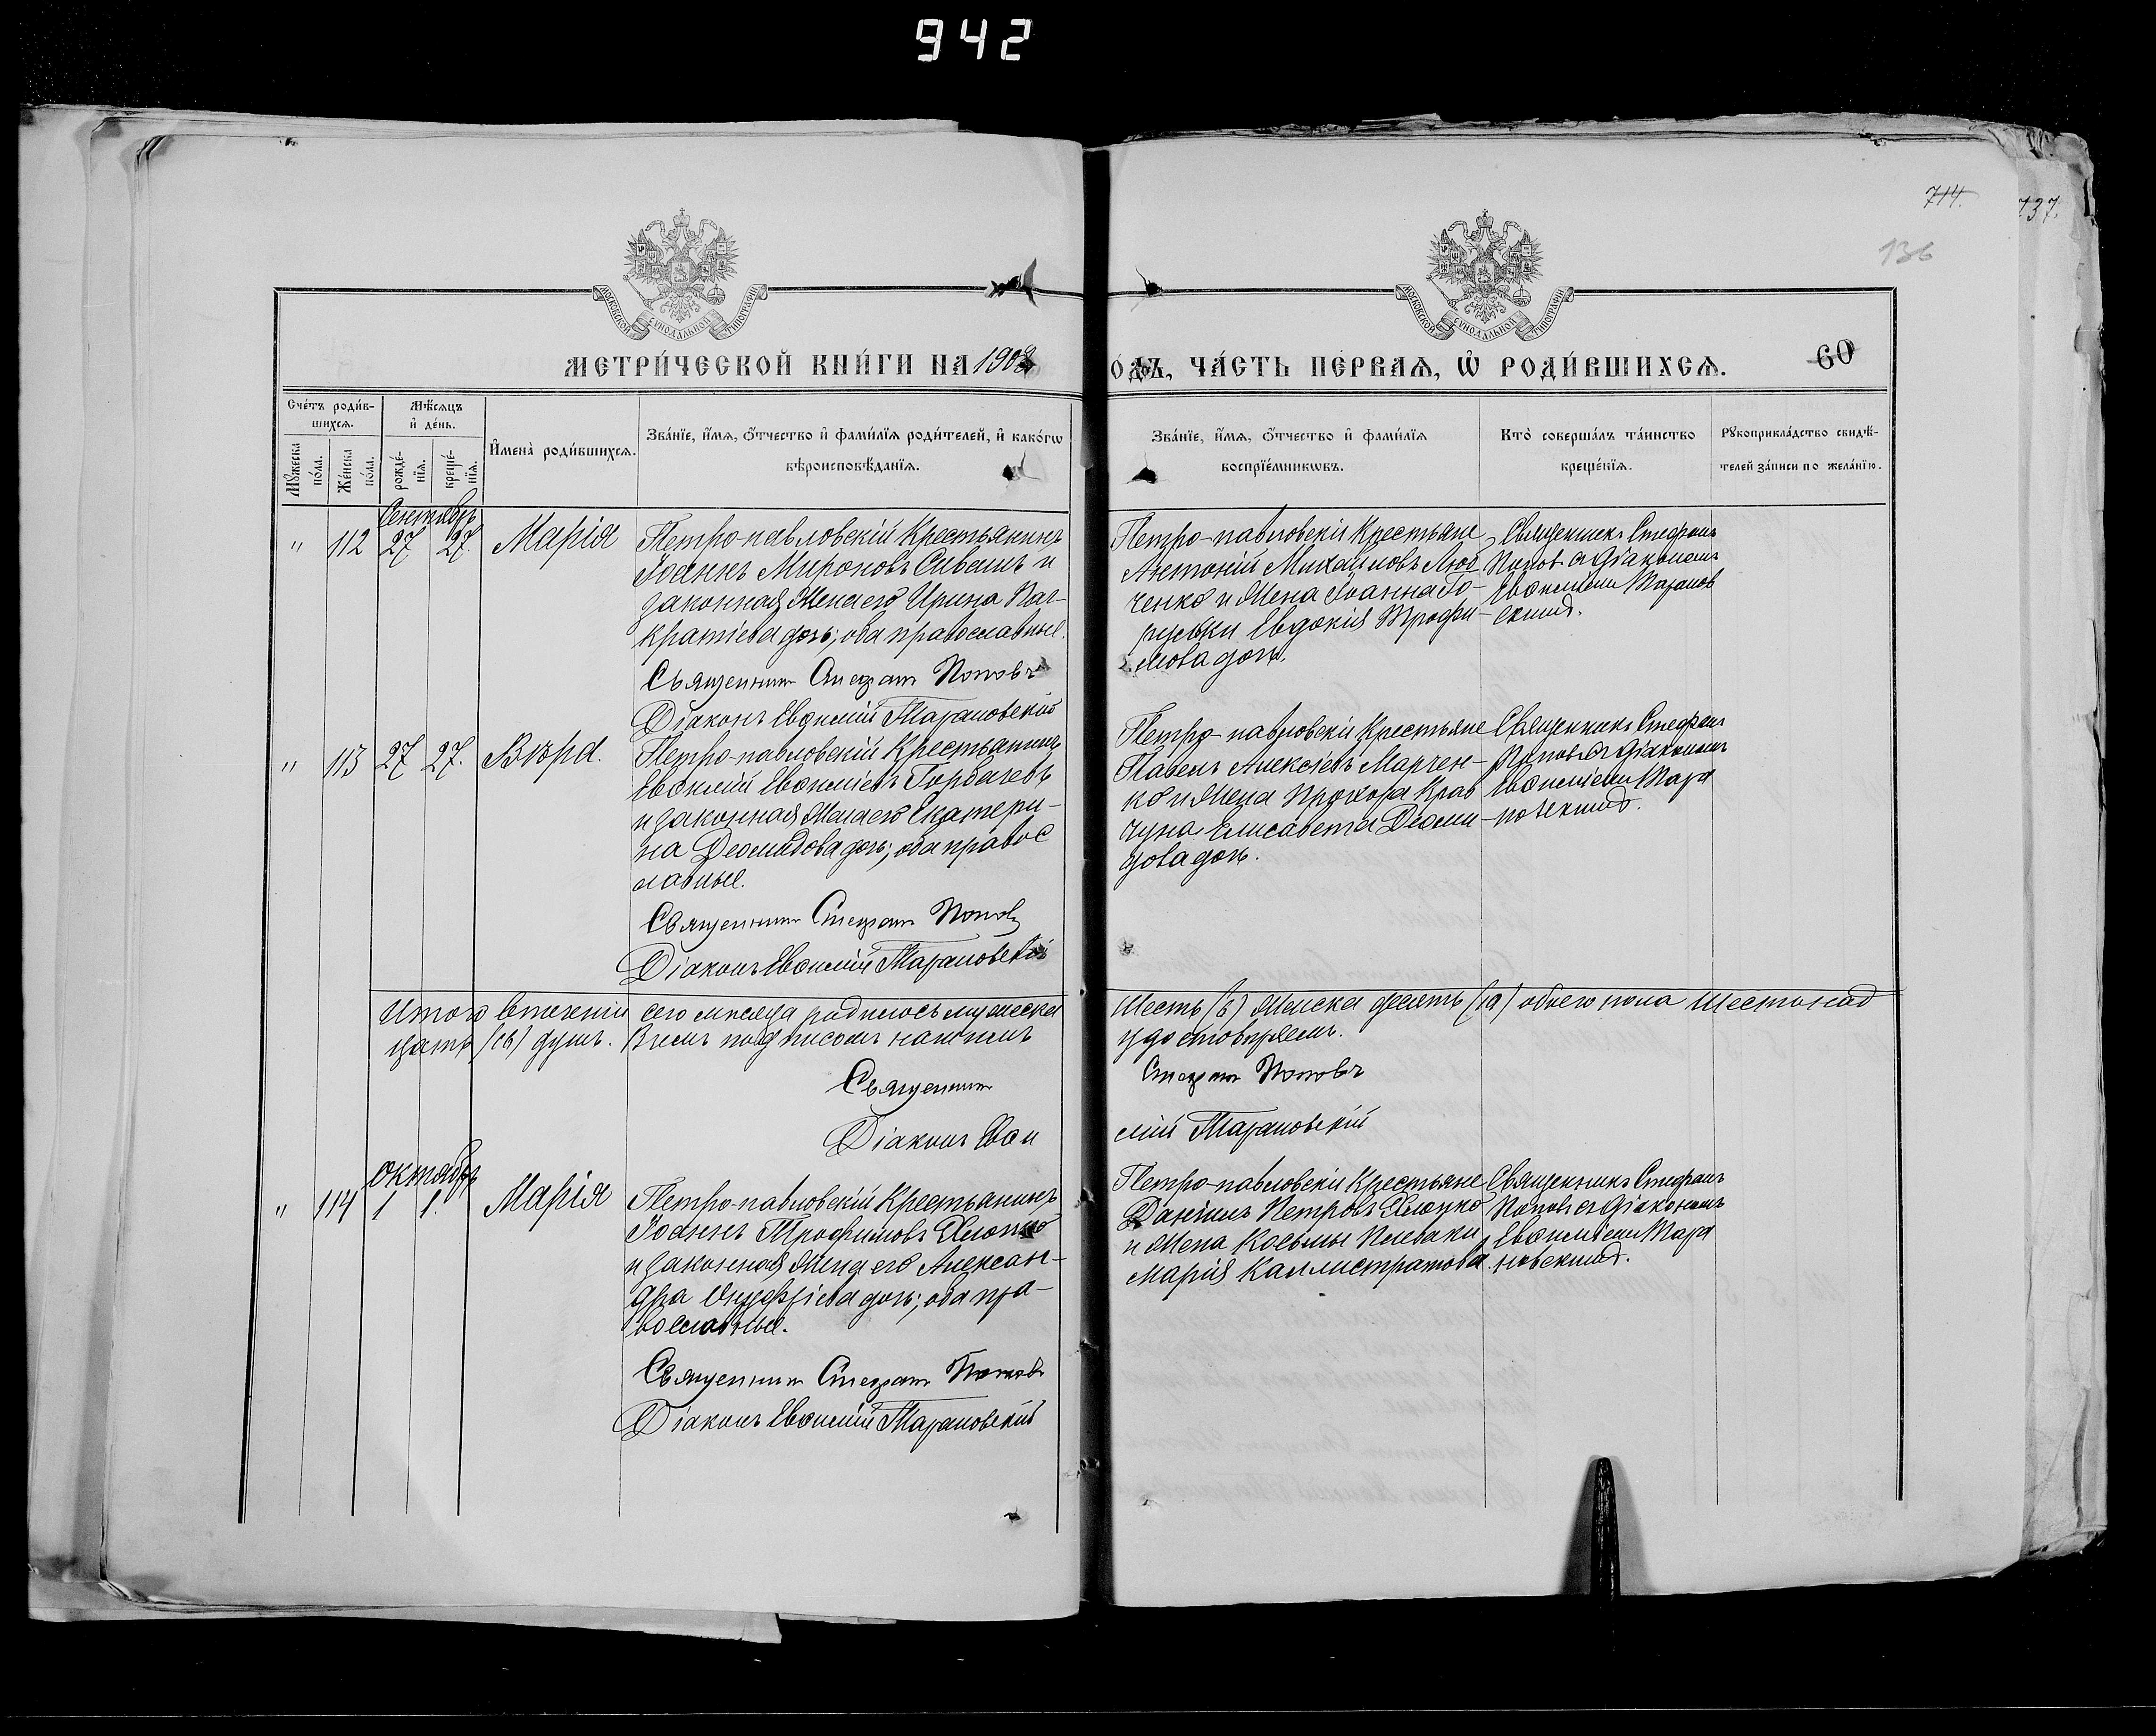 942
714.
737.
136
МОСКОВСКОЙ СѴНОДАЛЬНОЙ ТИПОГРАФІИ
МОСКОВСКОЙ СѴНОДАЛЬНОЙ ТИПОГРАФІИ
МЕТРИ́ЧЕСКОЙ КНИ́ГИ НА 1902
ГОДЪ, ЧА́СТЬ ПЕ́РВАЯ, Ѽ РОДИ́ВШИХСЯ.
60
Сче́тъ роди́в-
шихся.
Мѣ́сяцъ
и҆ де́нь.
И҆мена̀ роди́вшихся.
Зва́нїе, и҆́мя, ѻ҆́тчество и҆ фами́лїя роди́телей, и҆ како́гѡ
вѣроисповѣ́данїя.
Мꙋ́жеска
по́ла.
Же́нска
по́ла.
рожде́-
нїя.
креще́-
нїя.
Зва́нїе, и҆́мя, ѻ҆́тчество и҆ фами́лїя
воспрїе́мникѡвъ.
Кто̀ соверша́лъ та́инство
креще́нїя.
Рꙋкоприкла́дство свидѣ́-
телей за́писи по жела́нїю.
Сентябрь
" 112 27 27. Марія
Петро-павловскій Крестьянинъ
Іоаннъ Мироновъ Сивашъ и
законная жена его Ирина Пан-
кратіева дочь; оба православные.
Священникъ Стефанъ Поповъ
Діаконъ Евѳимій Тарановскій
Петро-павловскіи Крестьяне
Антоній Михаиловъ Люб
ченко и жена Іоанна Го-
рульки Евдокія Трофи-
мова дочь.
Священникъ Стефанъ
Поповъ съ Діакономъ
Евѳиміемъ Таранов
скимъ.
" 113 27 27. Вѣра.
Петро-павловскій Крестьянинъ
Евѳимій Евѳиміевъ Горбачевъ
и законная жена его Екатери-
на Деомидова дочь; оба правос
лавные.
Священникъ Стефанъ Поповъ
Діаконъ Евѳимій Тарановскій
Петро-павловскіи Крестьяне
Павелъ Алексіевъ Марчен-
ко и жена Прохора Крав
чуна Елисавета Деоми-
дова дочь.
Священникъ Стефанъ
Поповъ съ Діакономъ
Евѳиміемъ Тара
новскимъ.
Итого втеченіи сего мѣсяца родилось мужеска
шесть (6) женска десять (10) обоего пола шестнад
цать (16) душъ. Въ чемъ подписомъ нашимъ
удостовѣряемъ.
Священникъ Стефанъ Поповъ
Діаконъ Евѳимій Тарановскій
Октябрь
" 114 1 1. Марія
Петро-павловскій Крестьянинъ
Іоаннъ Трофимовъ
и законная жена его Алексан-
дра Онуфріева дочь; оба пра-
вославные.
Священникъ Стефанъ Поповъ
Діаконъ Евѳимій Тарановскій
Петро-павловскіи Крестьяне
Даніилъ Петровъ
и жена Космы Плеваки
Марія Каллистратова.
Священникъ Стефанъ
Поповъ съ Діакономъ
Евѳиміемъ Тара
новскимъ.